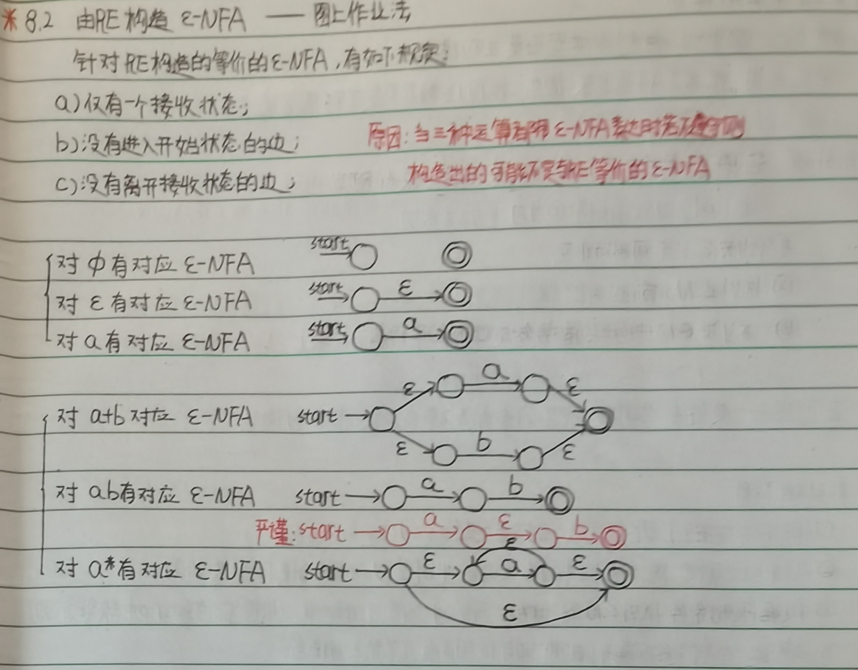 ※8.2 由RE构造 ε-NFA —— 图上作业法
针对RE构造的等价的ε-NFA,有如下规定:
a)仅有一个接收状态;
b)没有进入开始状态的边;
c)没有离开接收状态的边;
原因:当三种运算都用ε-NFA表达时若不遵守则
构造出的可能不是与RE等价的ε-NFA
对 φ 有对应 ε-NFA start
对 ε 有对应 ε-NFA start ε
对 a 有对应 ε-NFA start a
对 a+b 对应 ε-NFA start ε a ε
ε b ε
对 ab有对应 ε-NFA start a b
严谨: start a ε b
对 a*有对应 ε-NFA start ε a ε
ε
ε